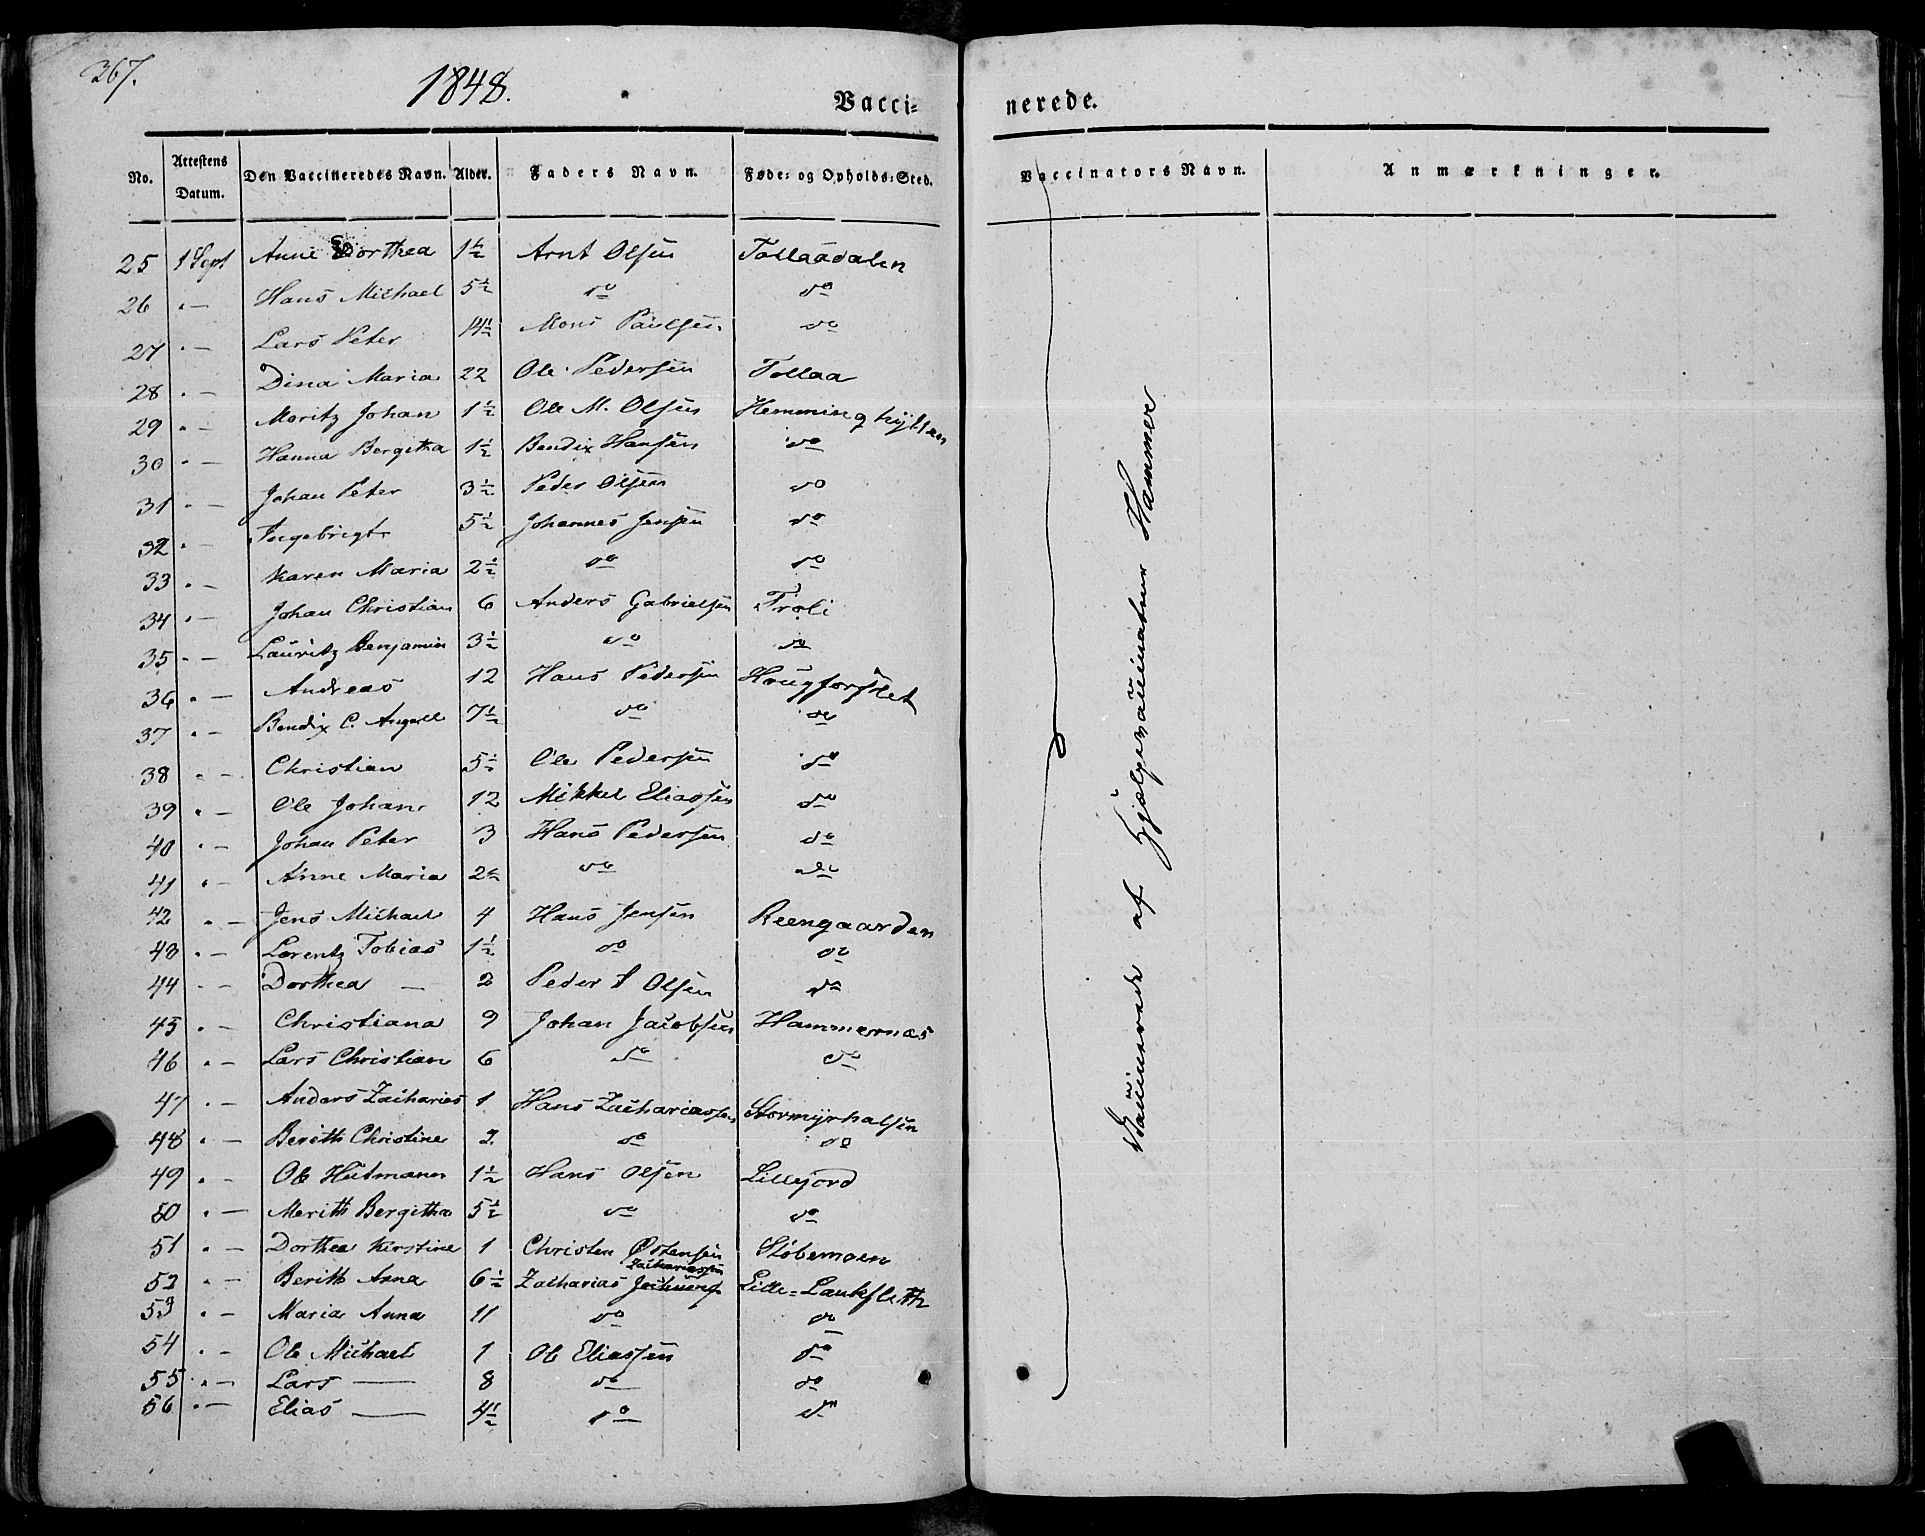 367.
1848.
Vacci-nerede.
No. Attestens Datum. Den Vaccineredes Navn. Alder. Faders Navn. Føde- og Opholds-Sted. Vaccinators Navn. Anmærkninger.
25 1 Sept Anne Dorthea 1½ Arnt Olsen Tollaadalen
26 " — Hans Michael 5½ do do
27 " — Lars Peter 4½ Mons Paulsen do
28 " — Dina Maria 22 Ole Pedersen Tollaa
29 " — Moritz Johan 1½ Ole M. Olsen
30 " — Hanna Bergitha 1½ Bendix Hansen do
31 " — Johan Peter 3½ Peder Olsen do
32 " — Ingebrigt 5½ Johannes Jensen do
33 " — Karen Maria 2½ do do
34 " — Johan Christian 6 Anders Gabrielsen Troli
35 " — Lauritz Benjamin 3½ do do
36 " — Andreas 12 Hans Pedersen Hougforslet
37 " — Bendix C. Angell 7½ do do
38 " — Christian 5½ Ole Pedersen do
39 " — Ole Johan 12 Mikkel Eliassen do
40 " — Johan Peter 3 Hans Pedersen do
41 " — Anne Maria 2½ do do
42 " — Jens Michael 4 Hans Jensen Reengaarden
43 " — Lorentz Tobias 1½ do do
44 " — Dorthea — 2 Peder Olsen do
45 " — Christiana 9 Johan Jacobsen Hammernæs
46 " — Lars Christian 6 do do
47 " — Anders Zacharias 1 Hans Zachariassen Stormyrhalsen
48 " — Berith Christine 2 do do
49 " — Ole Hutmann 1½ Hans Olsen Lillefjord
50 " — Merith Bergitha 5½ do do
51 " — Dorthea Kirstine 1 Christen Østensen Støbemoen
Zachariassen
52 " — Berith Anna 6½ Zacharias Lille-Laukslette
53 " — Maria Anna 11 do do
54 " — Ole Michael 1 Ole Eliassen do
55 " — Lars — 8 do do
56 " — Elias — 4½ do do
Vaccinerede af Hjælpevaccinateur Hammer